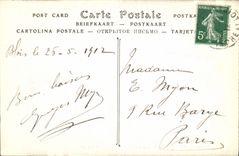 POST CARD Carte Postale POSTKAR
BRIEFKAART - POSTKARTE
CARTOLINA POSTALE - ОТКРЫТОЕ ПИСЬМО - TARJET
le 25-5-1912
Bons baisers
Madame
E. Myon
1 Rue Barye
Paris
5